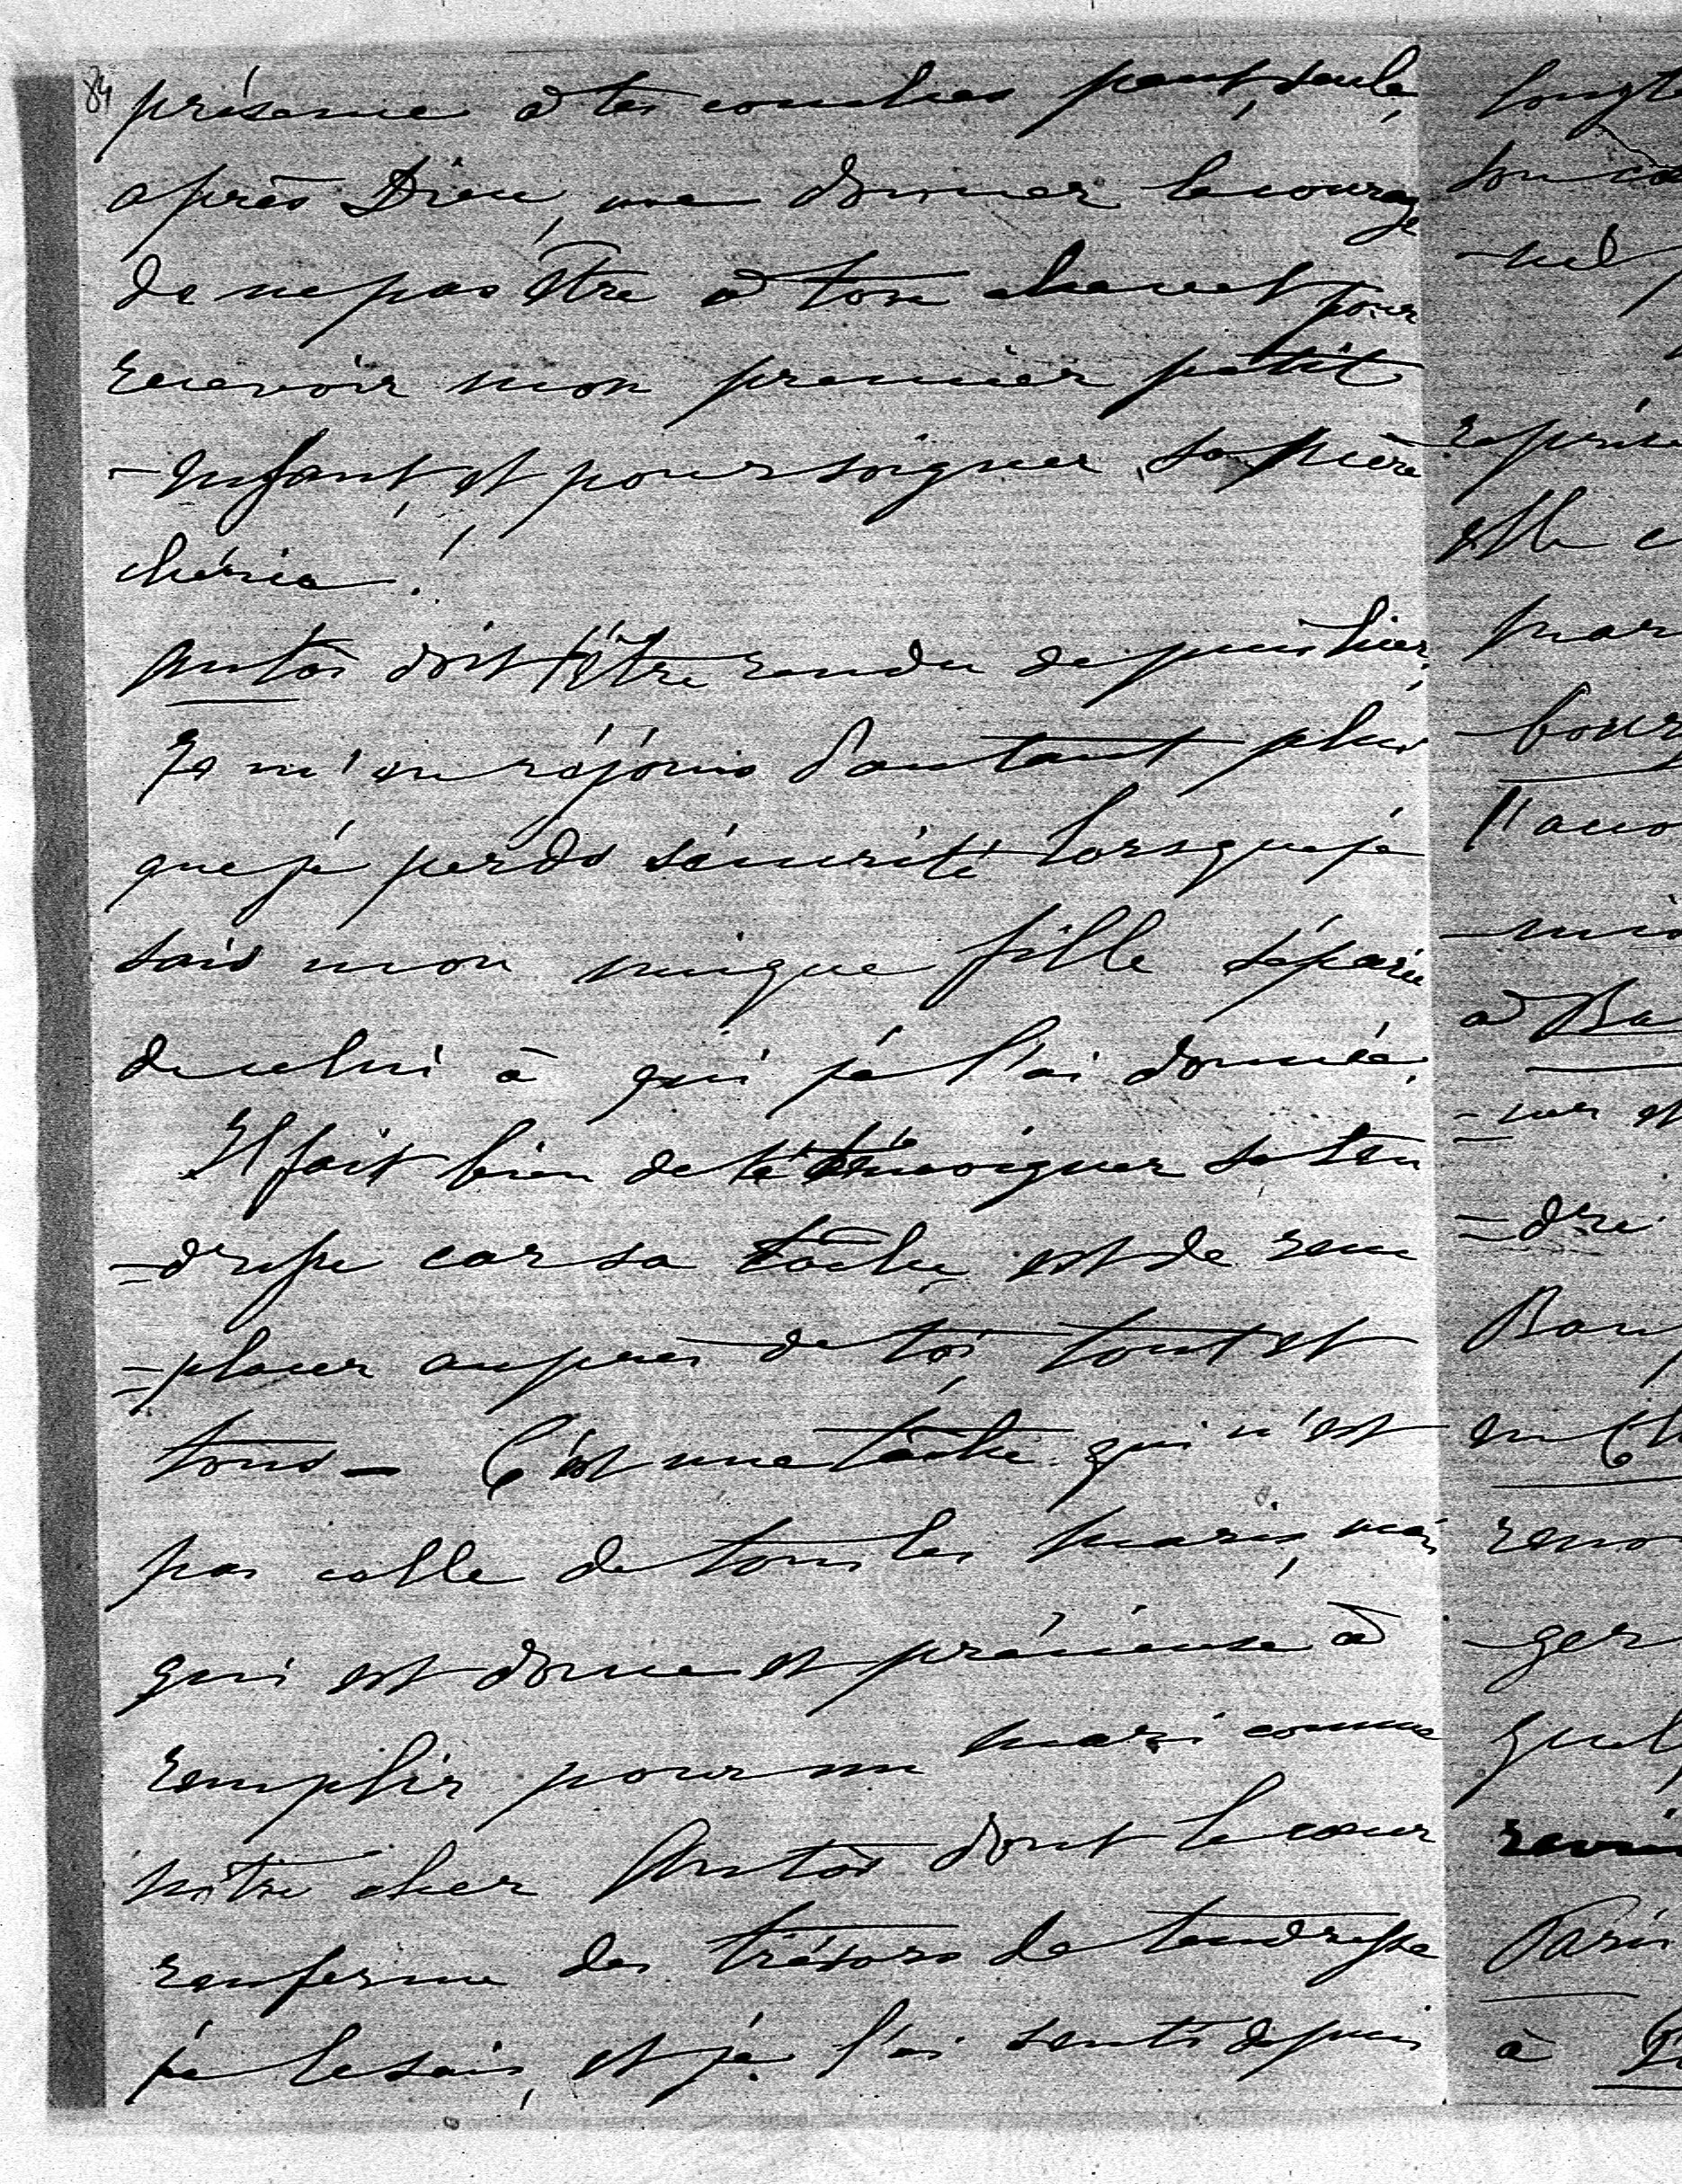 84
présence à tes couches peut, seule,
après Dieu, me donner le courage
de ne pas être à ton chevet pour
recevoir mon premier petit
-enfant, et pour soigner sa mère
chérie!
Antoi doit t'être rendu depuis hier,
Je m'en réjouis d'autant plus
que je perds sécurité lorsque je
sais mon unique fille séparée
de celui à qui je l'ai donnée.
Il fait bien de te témoigner sa ten
=dresse car sa tâche est de rem
=placer auprès de toi tout et
tous – C'est une tâche qui n'est
pas celle de tous les maris, mais
qui est douce et précieuse à
remplir pour un mari comme
nôtre cher Antoi dont le cœur
renferme des trésors de tendresse
je le sais, et je l'ai senti depuis
longte
son
-nel
repris
elle c
mar
-bourg
l'avo
-mis
à Ba
=ner et
=dre
Bou
en Ch
reno
-ger
quel
revin
Paris
à